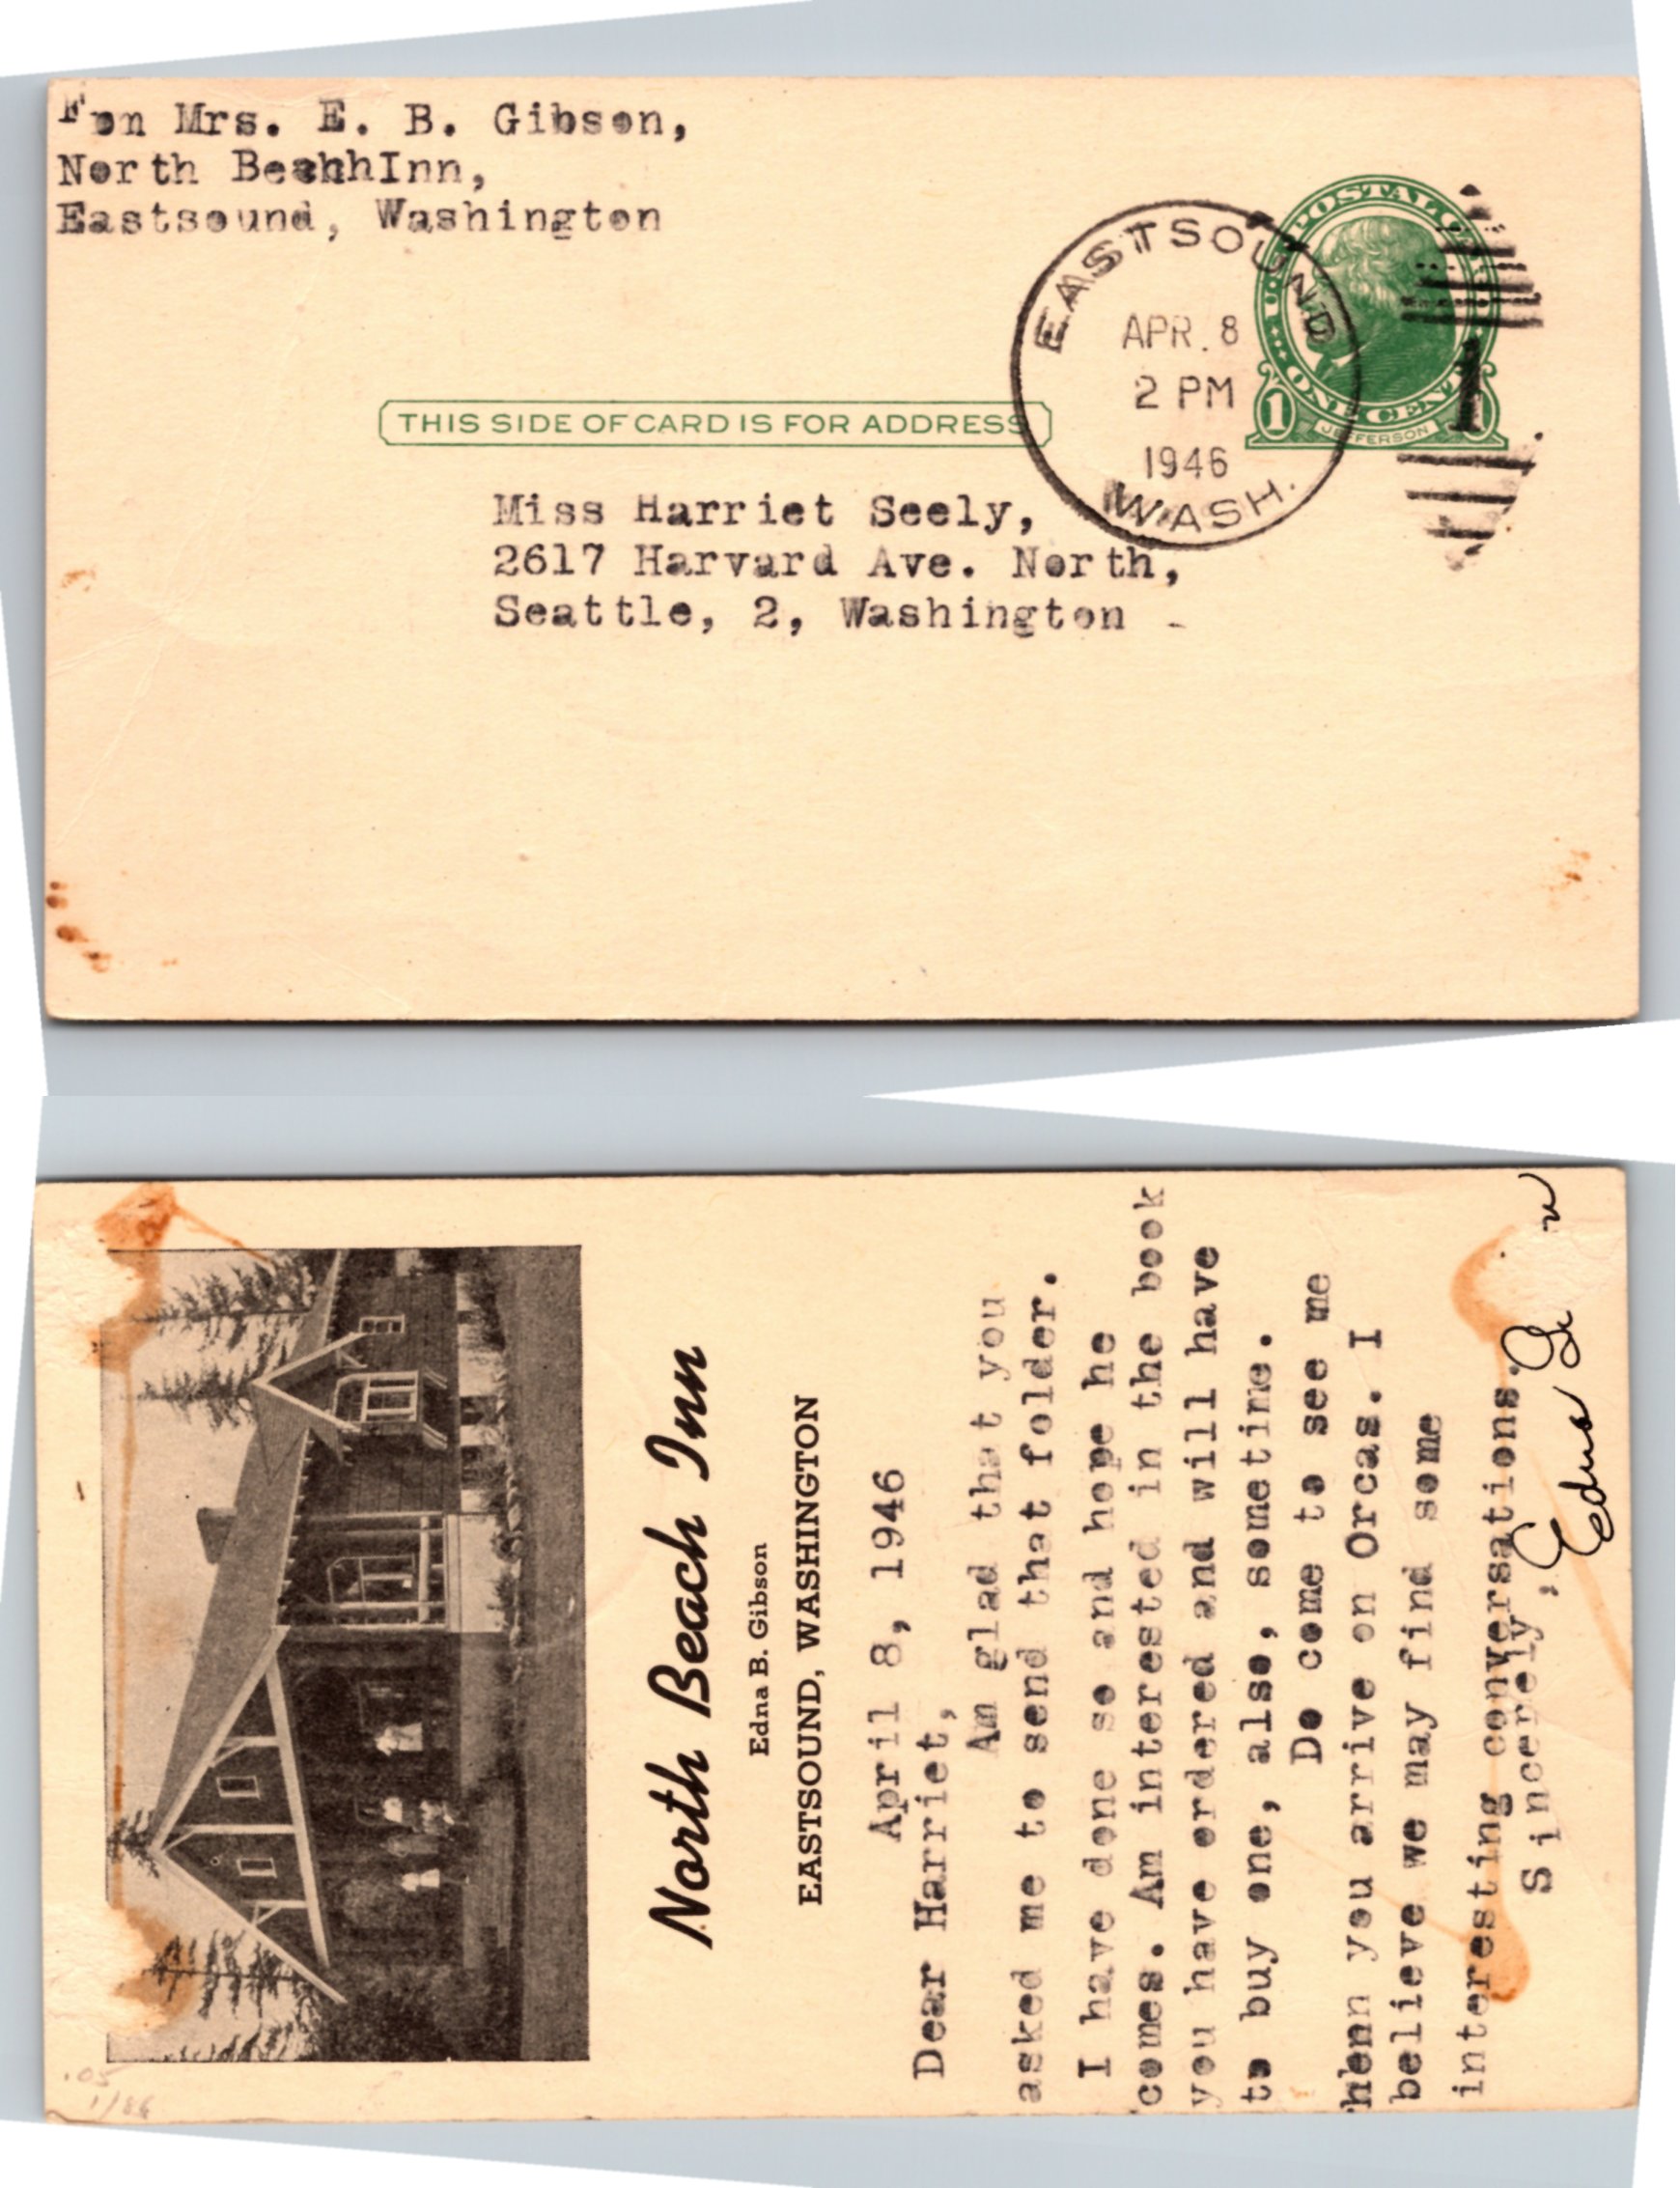 Fom Mrs. E. B. Gibson,
North BeachhInn,
Eastsound, Washington
EASTSOUND
APR. 8
2 PM
1946
WASH.
1
U.S. POSTAL CARD
ONE CENT
1 1
JEFFERSON
THIS SIDE OF CARD IS FOR ADDRESS
Miss Harriet Seely,
2617 Harvard Ave. North,
Seattle, 2, Washington -
North Beach Inn
Edna B. Gibson
EASTSOUND, WASHINGTON
April 8, 1946
Dear Harriet,
Am glad that you
asked me to send that folder.
I have done so and hope he
comes. Am interested in the book
you have ordered and will have
to buy one, also, sometime.
Do come to see me
when you arrive on Orcas. I
believe we may find some
interesting conversations.
Sincerely,
Edna
.05
1/86